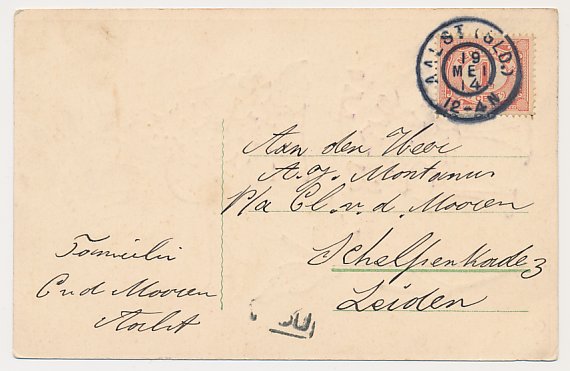 AALST (GLD.)
19
MEI
14
12-4N
Aan den Heer
A. J. Montanus
p/a Cl. v. d. Mooren
Schelpenkade 3
Leiden
Familie
C v d Mooren
Aalst